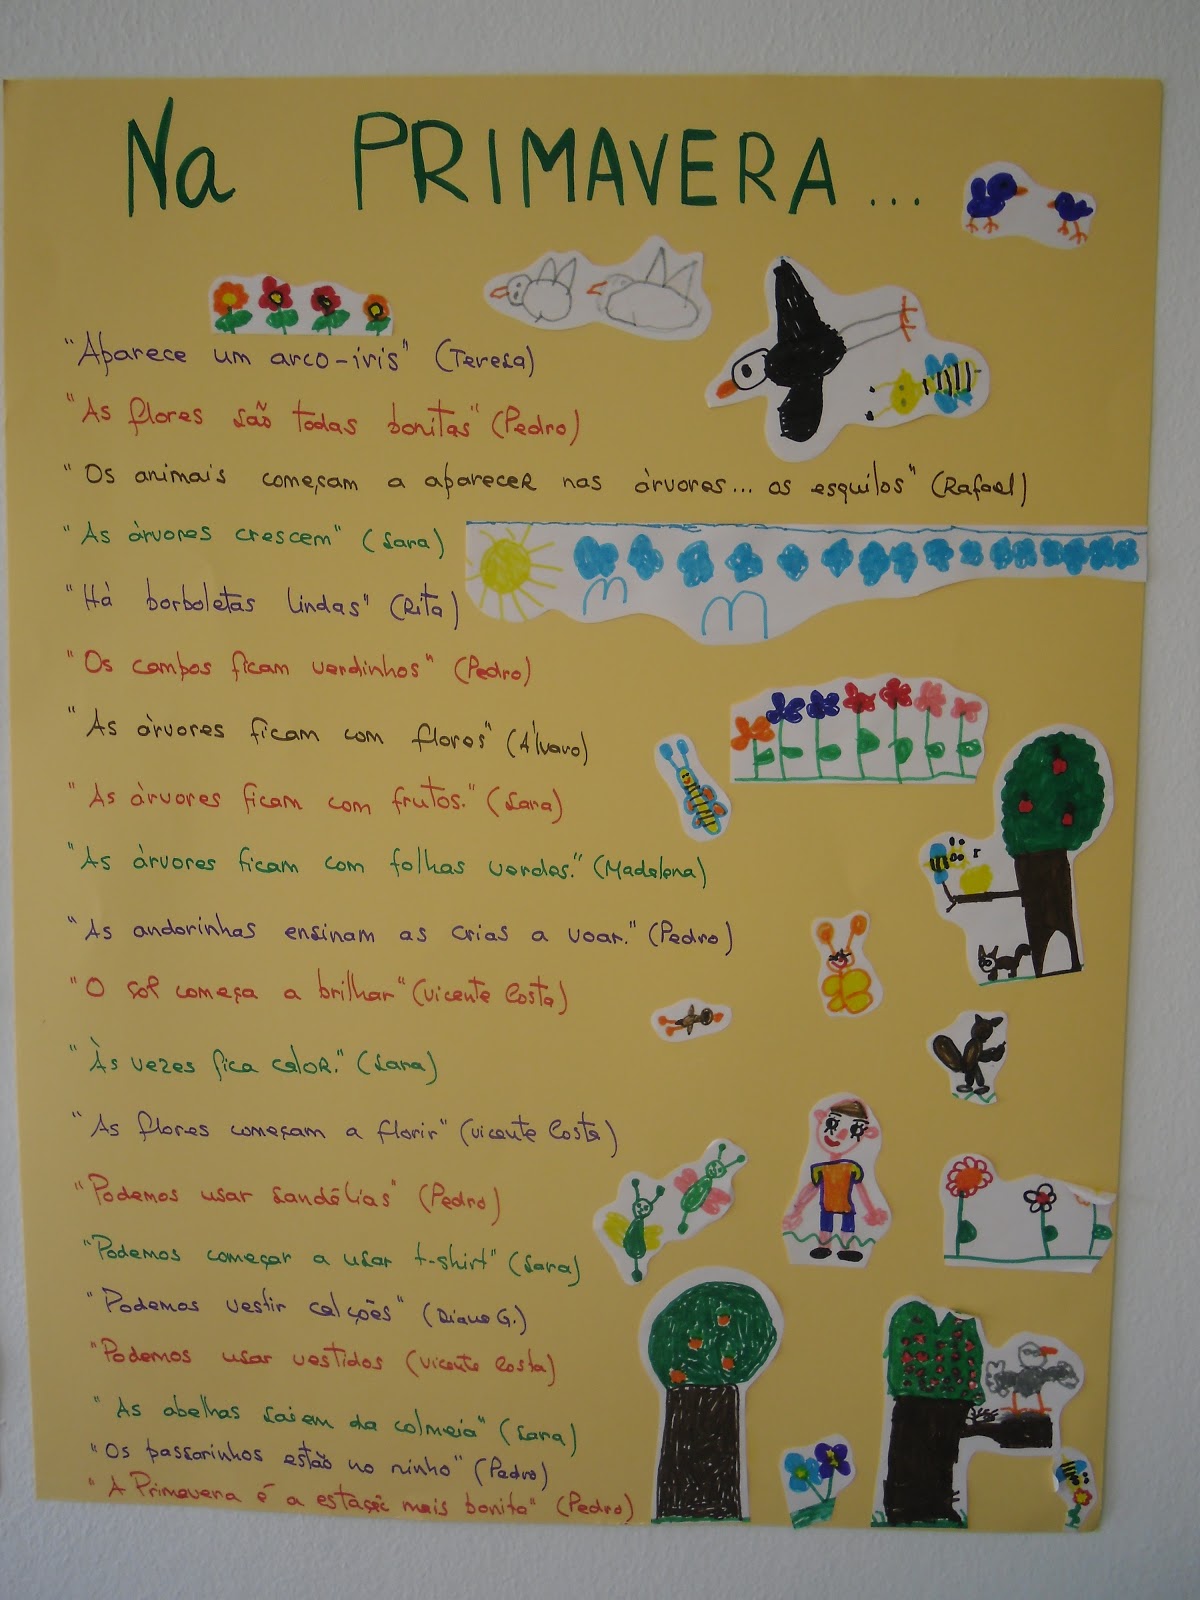 Na PRIMAVERA...
"Aparece um arco-íris" (Teresa)
"As flores são todas bonitas" (Pedro)
"Os animais começam a aparecer nas àrvores... os esquilos" (Rafael)
"As àrvores crescem" (Sara)
"Hà borboletas lindas" (Rita)
"Os campos ficam verdinhos" (Pedro)
"As àrvores ficam com flores" (Álvaro)
"As àrvores ficam com frutos." (Sara)
"As àrvores ficam com folhas verdes." (Madalena)
"As andorinhas ensinam as crias a voar." (Pedro)
"O sol começa a brilhar" (Vicente Costa)
"Às vezes fica calor." (Sara)
"As flores começam a florir" (Vicente Costa)
"Podemos usar sandálias" (Pedro)
"Podemos começar a usar t-shirt" (Sara)
"Podemos vestir calções" (Diana G.)
"Podemos usar vestidos (Vicente Costa)
"As abelhas saiem da colmeia" (Sara)
"Os passarinhos estão no ninho" (Pedro)
"A Primavera é a estação mais bonita" (Pedro)